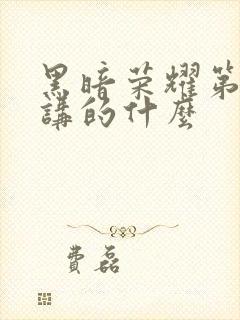 黑暗荣耀第
講的什麼
費磊